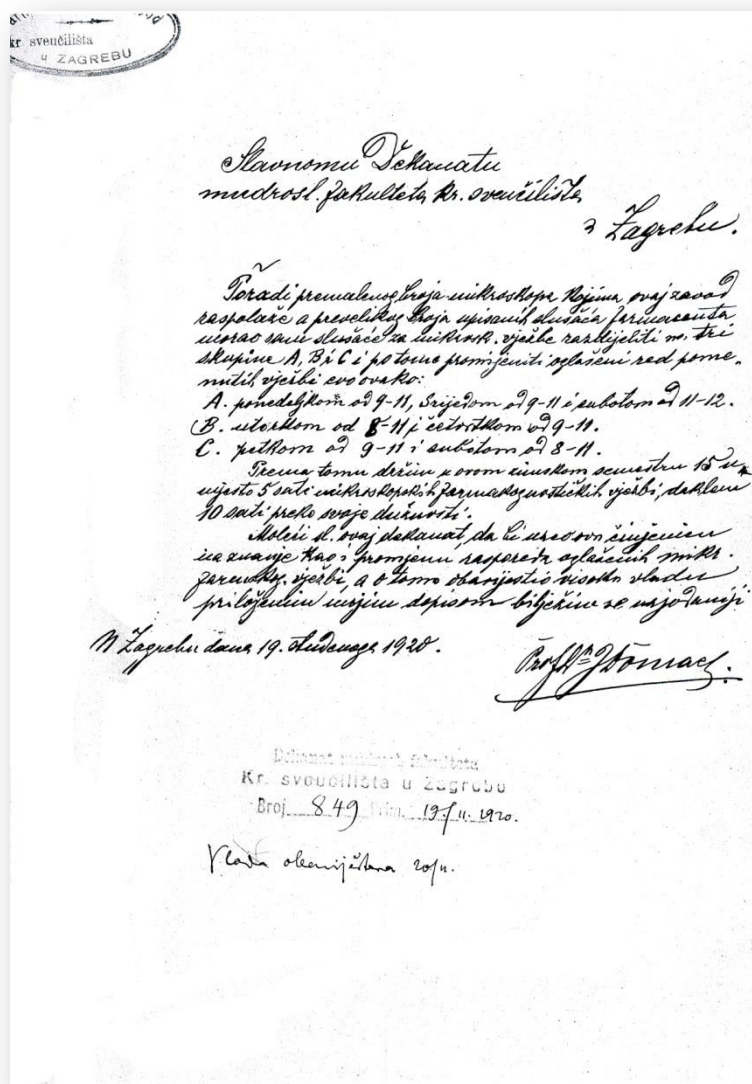 kr sveučilišta
u ZAGREBU
Slavnomu Dekanatu
mudrosl. fakulteta kr. sveučilišta
u Zagrebu.
Poradi premalenog broja mikroskopa kojima ovaj zavod
raspolaže a prevelikog broja upisanih slušača farmaceuta
morao sam slušače za mikrosk. vježbe razdijeliti na tri
skupine A, B i C i po tome promijeniti oglašeni red pome-
nutih vježbi evo ovako:
A. ponedjeljkom od 9-11, Srijedom od 9-11 i subotom od 11-12.
B. utorkom od 8-11 i četvrtkom od 9-11.
C. petkom od 9-11 i subotom od 8-11.
Prema tomu držim u ovom zimskom semestru 15 u
mjesto 5 sati mikroskopskih farmakognostičkih vježbi, dakle
10 sati preko svoje dužnosti.
Moleći sl. ovaj dekanat, da bi uzeo ovu činjenicu
na znanje kao i promjenu rasporeda oglašenih mikr.
farmakog. vježbi, a o tome obavijestio visoku vladu
priloženim mojim dopisom bilježim se
U Zagrebu dana 19. studenoga 1920.
Prof. Dr. J Domac.
Dekanat fakulteta
Kr. sveučilišta u Zagrebu
Broj 849 Prim. 19/11. 1920.
Vlada obaviještena 20/11.